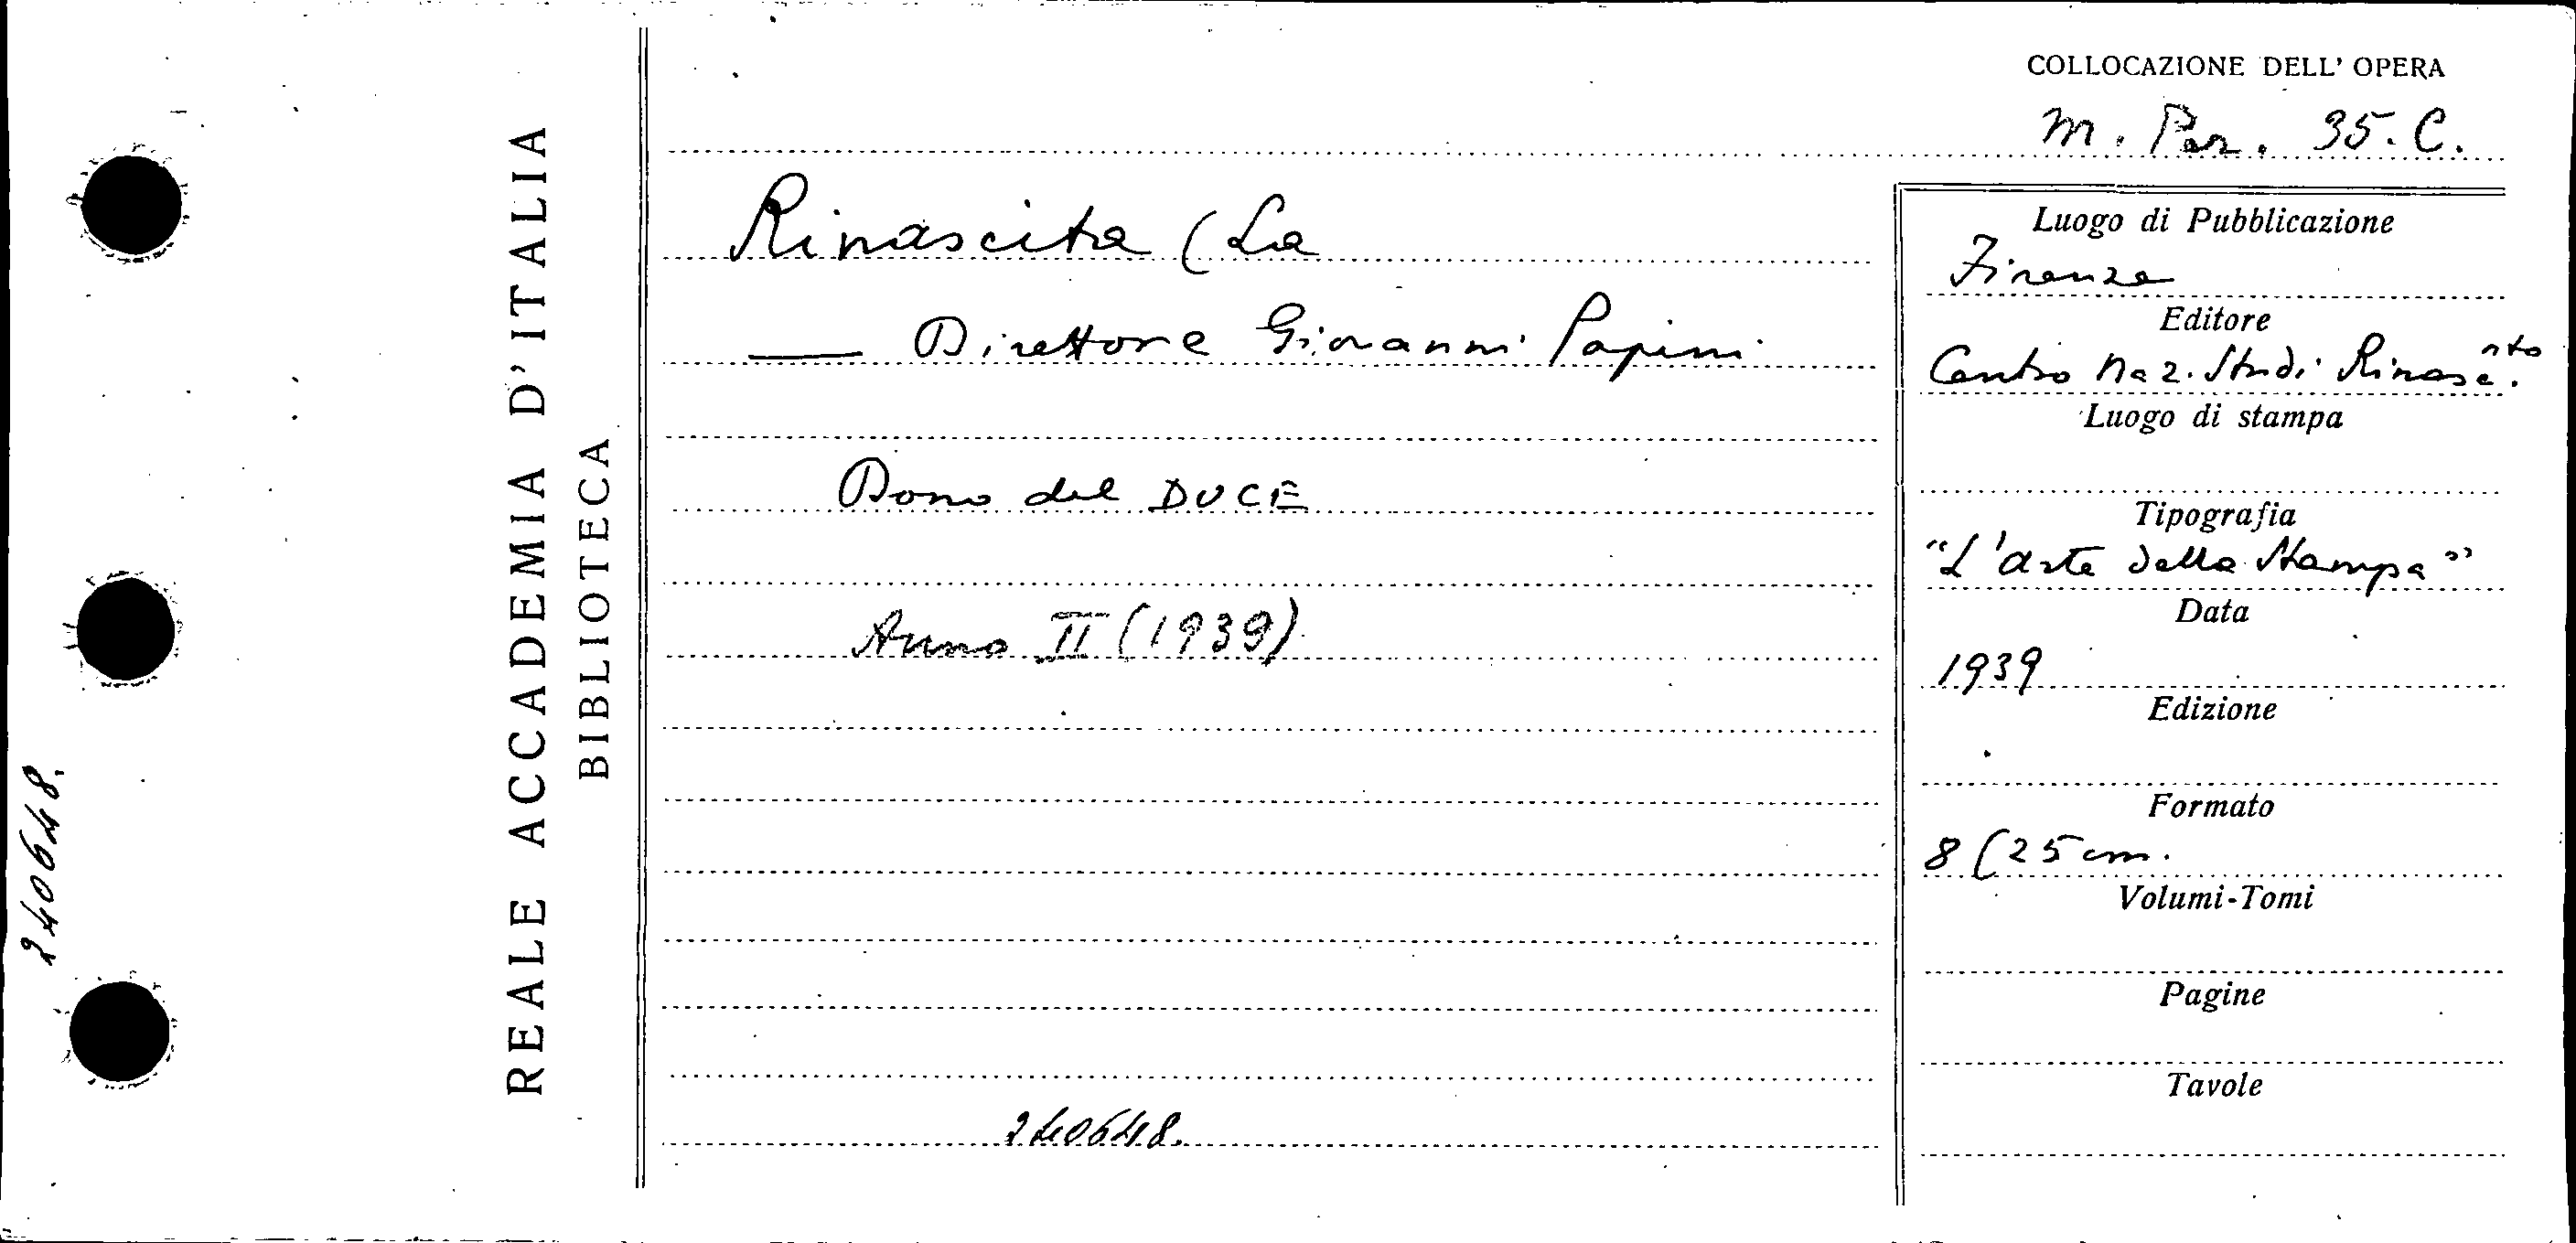 REALE ACCADEMIA D'ITALIA
BIBLIOTECA
240648.
COLLOCAZIONE DELL' OPERA
M. Per. 35. C.
Rinascita (La
— Direttore Giovanni Papini
Dono del DUCE
Anno II (1939)
240648.
Luogo di Pubblicazione
Firenze
Editore
Centro Naz. Studi Rinasc.nto
Luogo di stampa
Tipografia
"L'arte della Stampa"
Data
1939
Edizione
Formato
8 (25 cm.
Volumi-Tomi
Pagine
Tavole